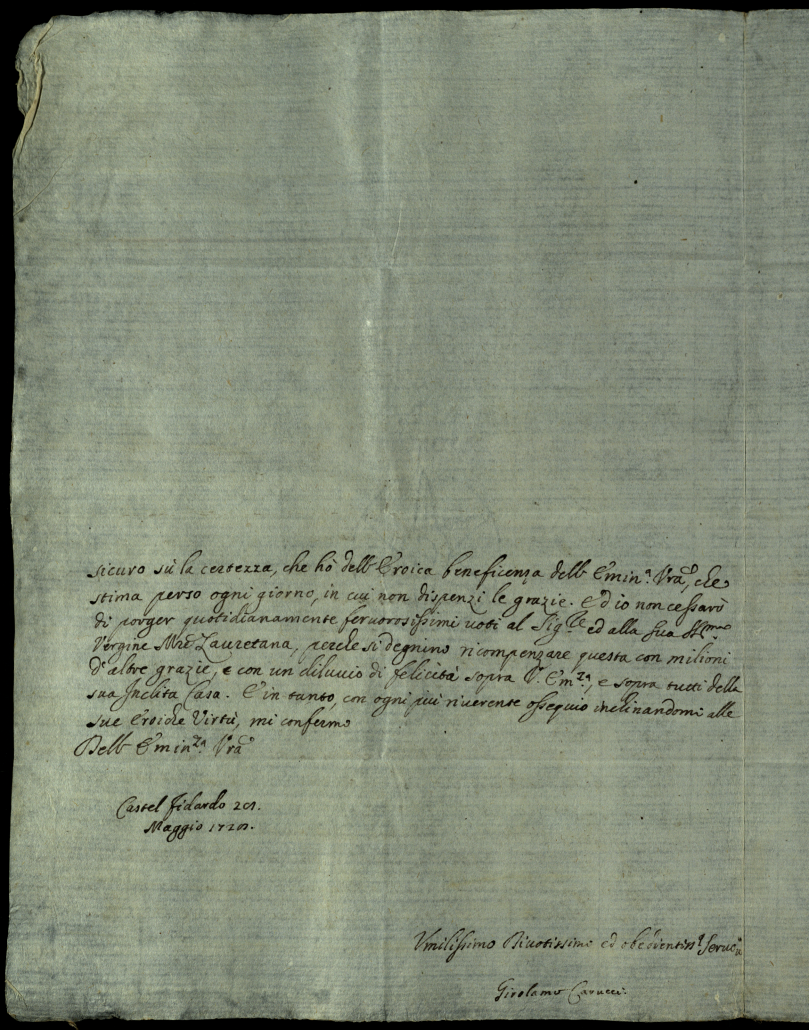 sicuro sù la certezza, che hò dell'Eroica beneficenza dell'Emin.ª Vra, che
stima perso ogni giorno, in cui non dispenzi le grazie. Ed io non cessarò
di porger quotidianamente feruorosissimi uoti al Sig.re ed alla sua SS.ma
Vergine Mre Lauretana, perche si degnino ricompenzare questa con milioni
d'altre grazie, e con un diluuio di felicità sopra V. Em.za, e sopra tutti della
sua Inclita Casa. E in tanto, con ogni più riuerente ossequio inchinandomi alle
sue Eroiche Virtù, mi confermo
Dell'Emin.za Vra
Castel fidardo
Maggio
Vmilissimo Diuotissimo ed obedientiss.º Seru.e
Girolamo Carucci.